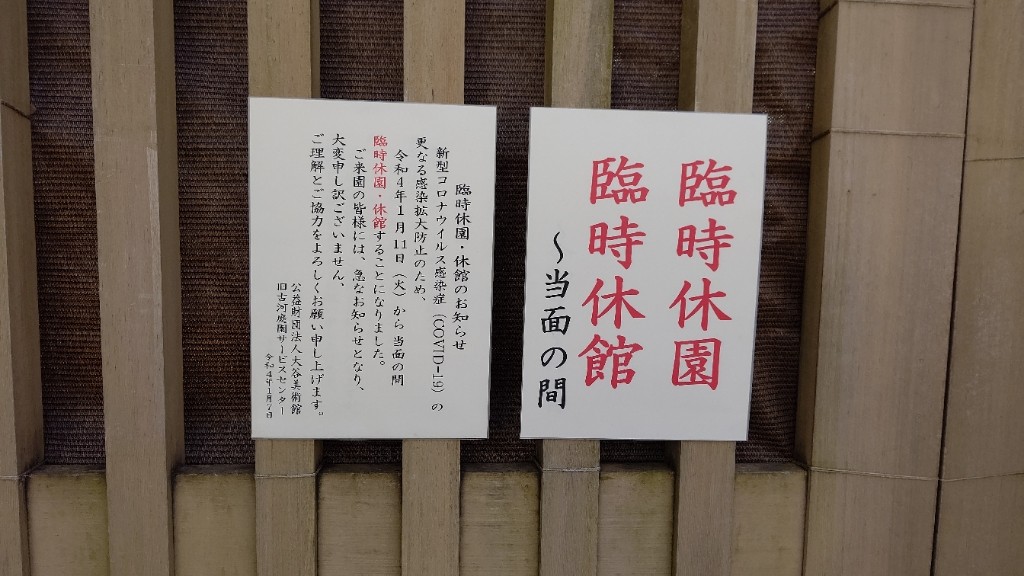 臨時休園
臨時休館
～当面の間
臨時休園・休館のお知らせ
新型コロナウイルス感染症（COVID-19）の
更なる感染拡大防止のため、
令和4年1月11日（火）から当面の間
臨時休園・休館することになりました。
ご来園の皆様には、急なお知らせとなり、
大変申し訳ございません。
ご理解とご協力をよろしくお願い申し上げます。
公益財団法人大谷美術館
旧古河庭園サービスセンター
令和4年1月7日